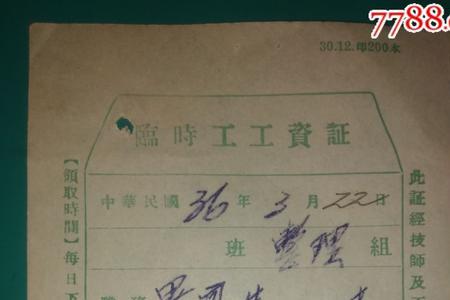 7788.c
30.12.印200本
臨時工工資証
中華民國36年3月22日
班 整理 組
【領取時間】每日五
此証經技師及